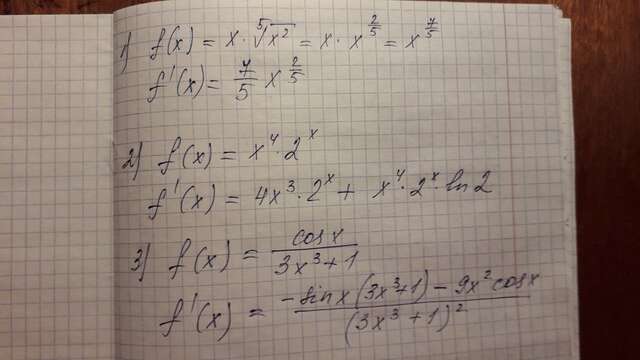 1) f(x) = x · ⁵√x² = x · x^(2/5) = x^(7/5)
f'(x) = 7/5 x^(2/5)
2) f(x) = x⁴ · 2ˣ
f'(x) = 4x³ · 2ˣ + x⁴ · 2ˣ · ln 2
3) f(x) = cos x / (3x³ + 1)
f'(x) = (-sin x (3x³ + 1) - 9x² cos x) / (3x³ + 1)²